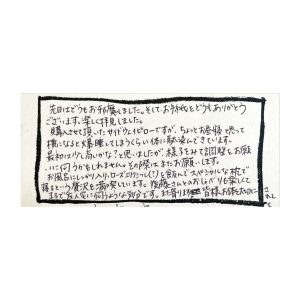 先日はどうもお手お属しました。そしてお手紙をどうもありがとう
ございます。楽しく拝見しました。
購入させて頂いたサイドウェイピローですが、ちょっとお昼寝と思って
横になると爆睡してしまうくらい体に馴染んできています。
最初は少し高いかな?と思いましたが、様子をみて調整をお願
いに伺うかもしれません。その際はまたお願いします。
お風呂にしっかり入り、ローズヒップティー(!)を飲んでスペシャルな枕で
寝るという贅沢を満喫しています。後藤さんとのおしゃべりも楽しくて
まるで友人宅に伺うような気分です。また寄ります 皆様お体を大切に